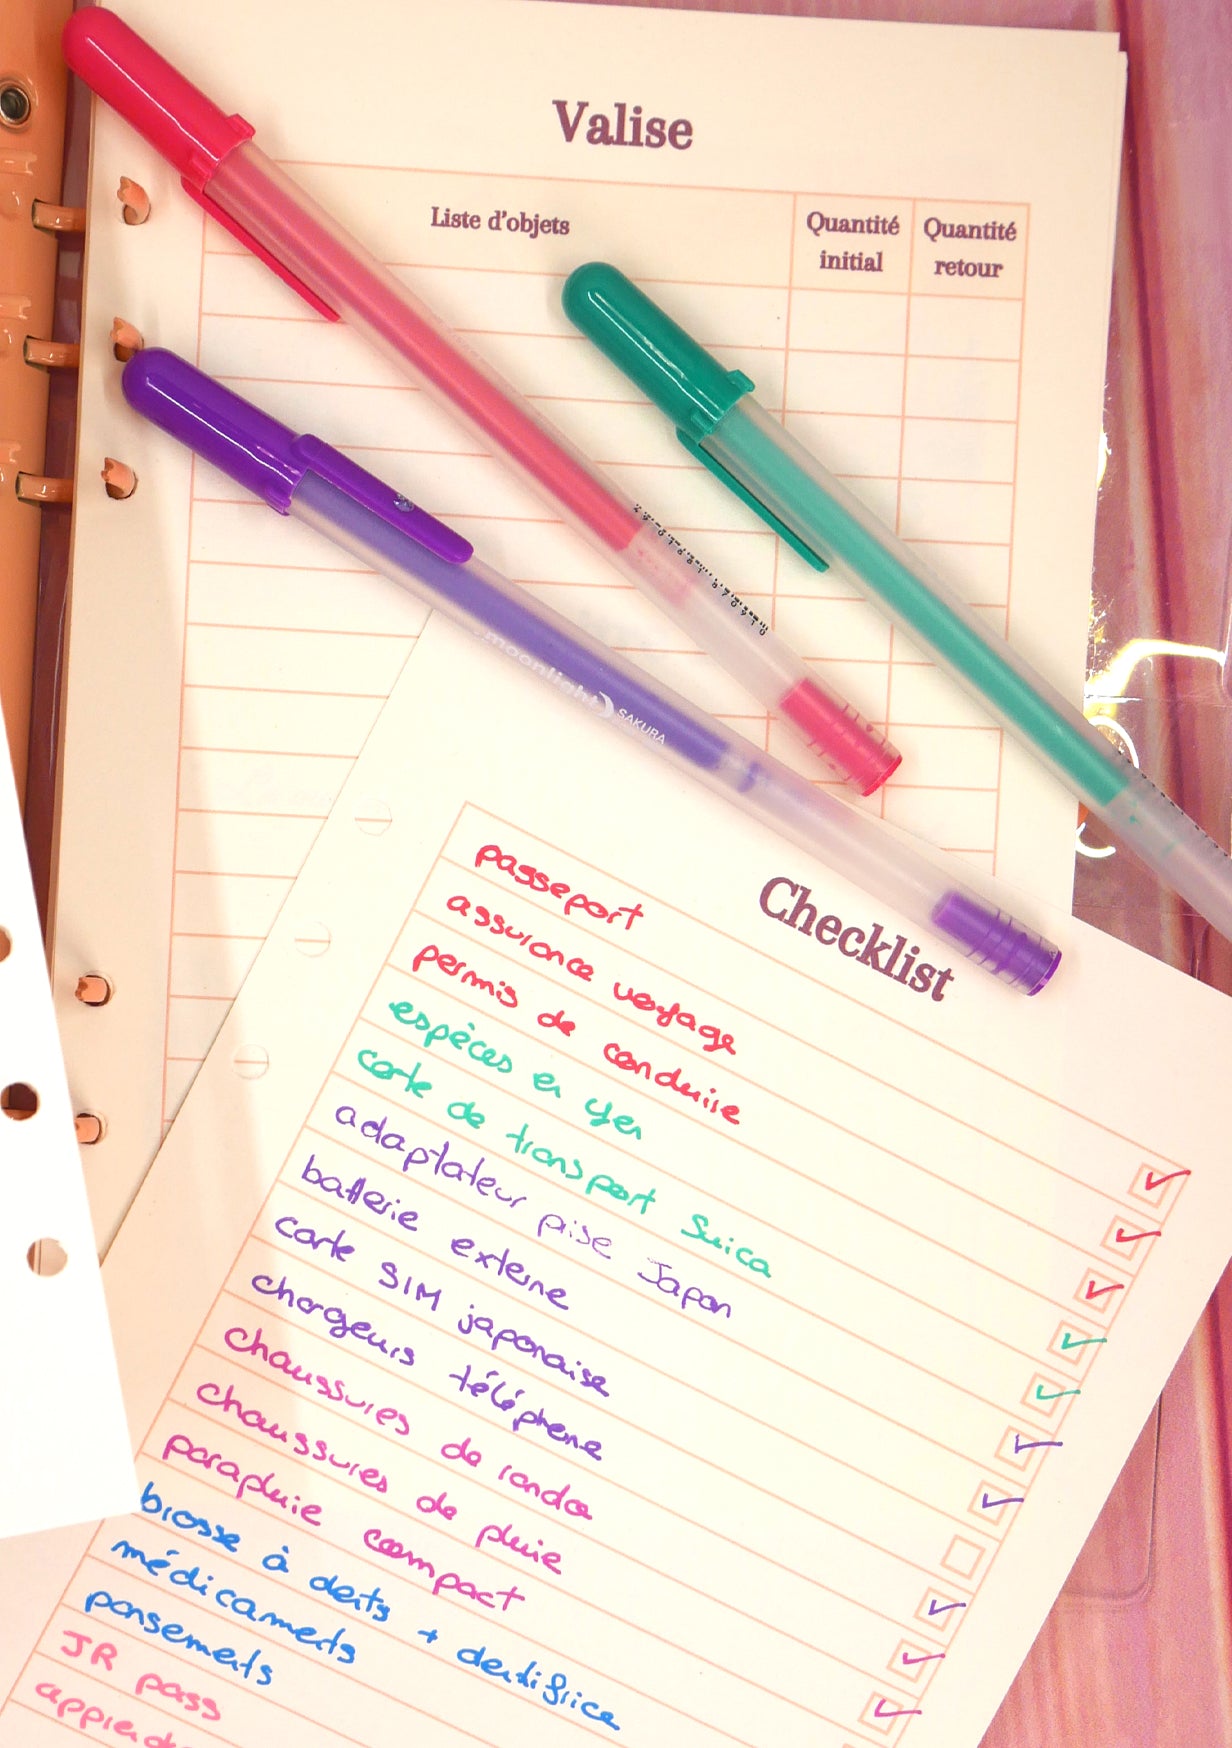 Valise
Liste d'objets
Quantité
initial
Quantité
retour
moonlight SAKURA
Checklist
passeport
assurance voyage
permis de conduire
espèces en yen
carte de transport Suica
adaptateur prise Japon
batterie externe
carte SIM japonaise
chargeurs téléphone
chaussures de rando
chaussures de pluie
parapluie compact
brosse à dents + dentifrice
médicaments
pansements
JR pass